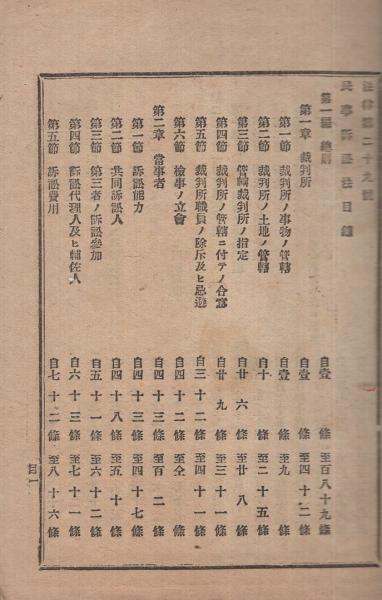 法律第二十九號
民事訴訟法目錄
第一編 總則 自壹條至百八十九條
第一章 裁判所 自壹條至四十二條
第一節 裁判所ノ事物ノ管轄 自壹條至九條
第二節 裁判所ノ土地ノ管轄 自十條至二十五條
第三節 管轄裁判所ノ指定 自廿六條至廿八條
第四節 裁判所ノ管轄ニ付テノ合意 自廿九條至三十一條
第五節 裁判所職員ノ除斥及ヒ忌避 自三十二條至四十一條
第六節 檢事ノ立會 自四十二條至仝條
第二章 當事者 自四十三條至百二條
第一節 訴訟能力 自四十三條至四十七條
第二節 共同訴訟人 自四十八條至五十條
第三節 第三者ノ訴訟參加 自五十一條至六十二條
第四節 訴訟代理人及ヒ輔佐人 自六十三條至七十一條
第五節 訴訟費用 自七十二條至八十六條